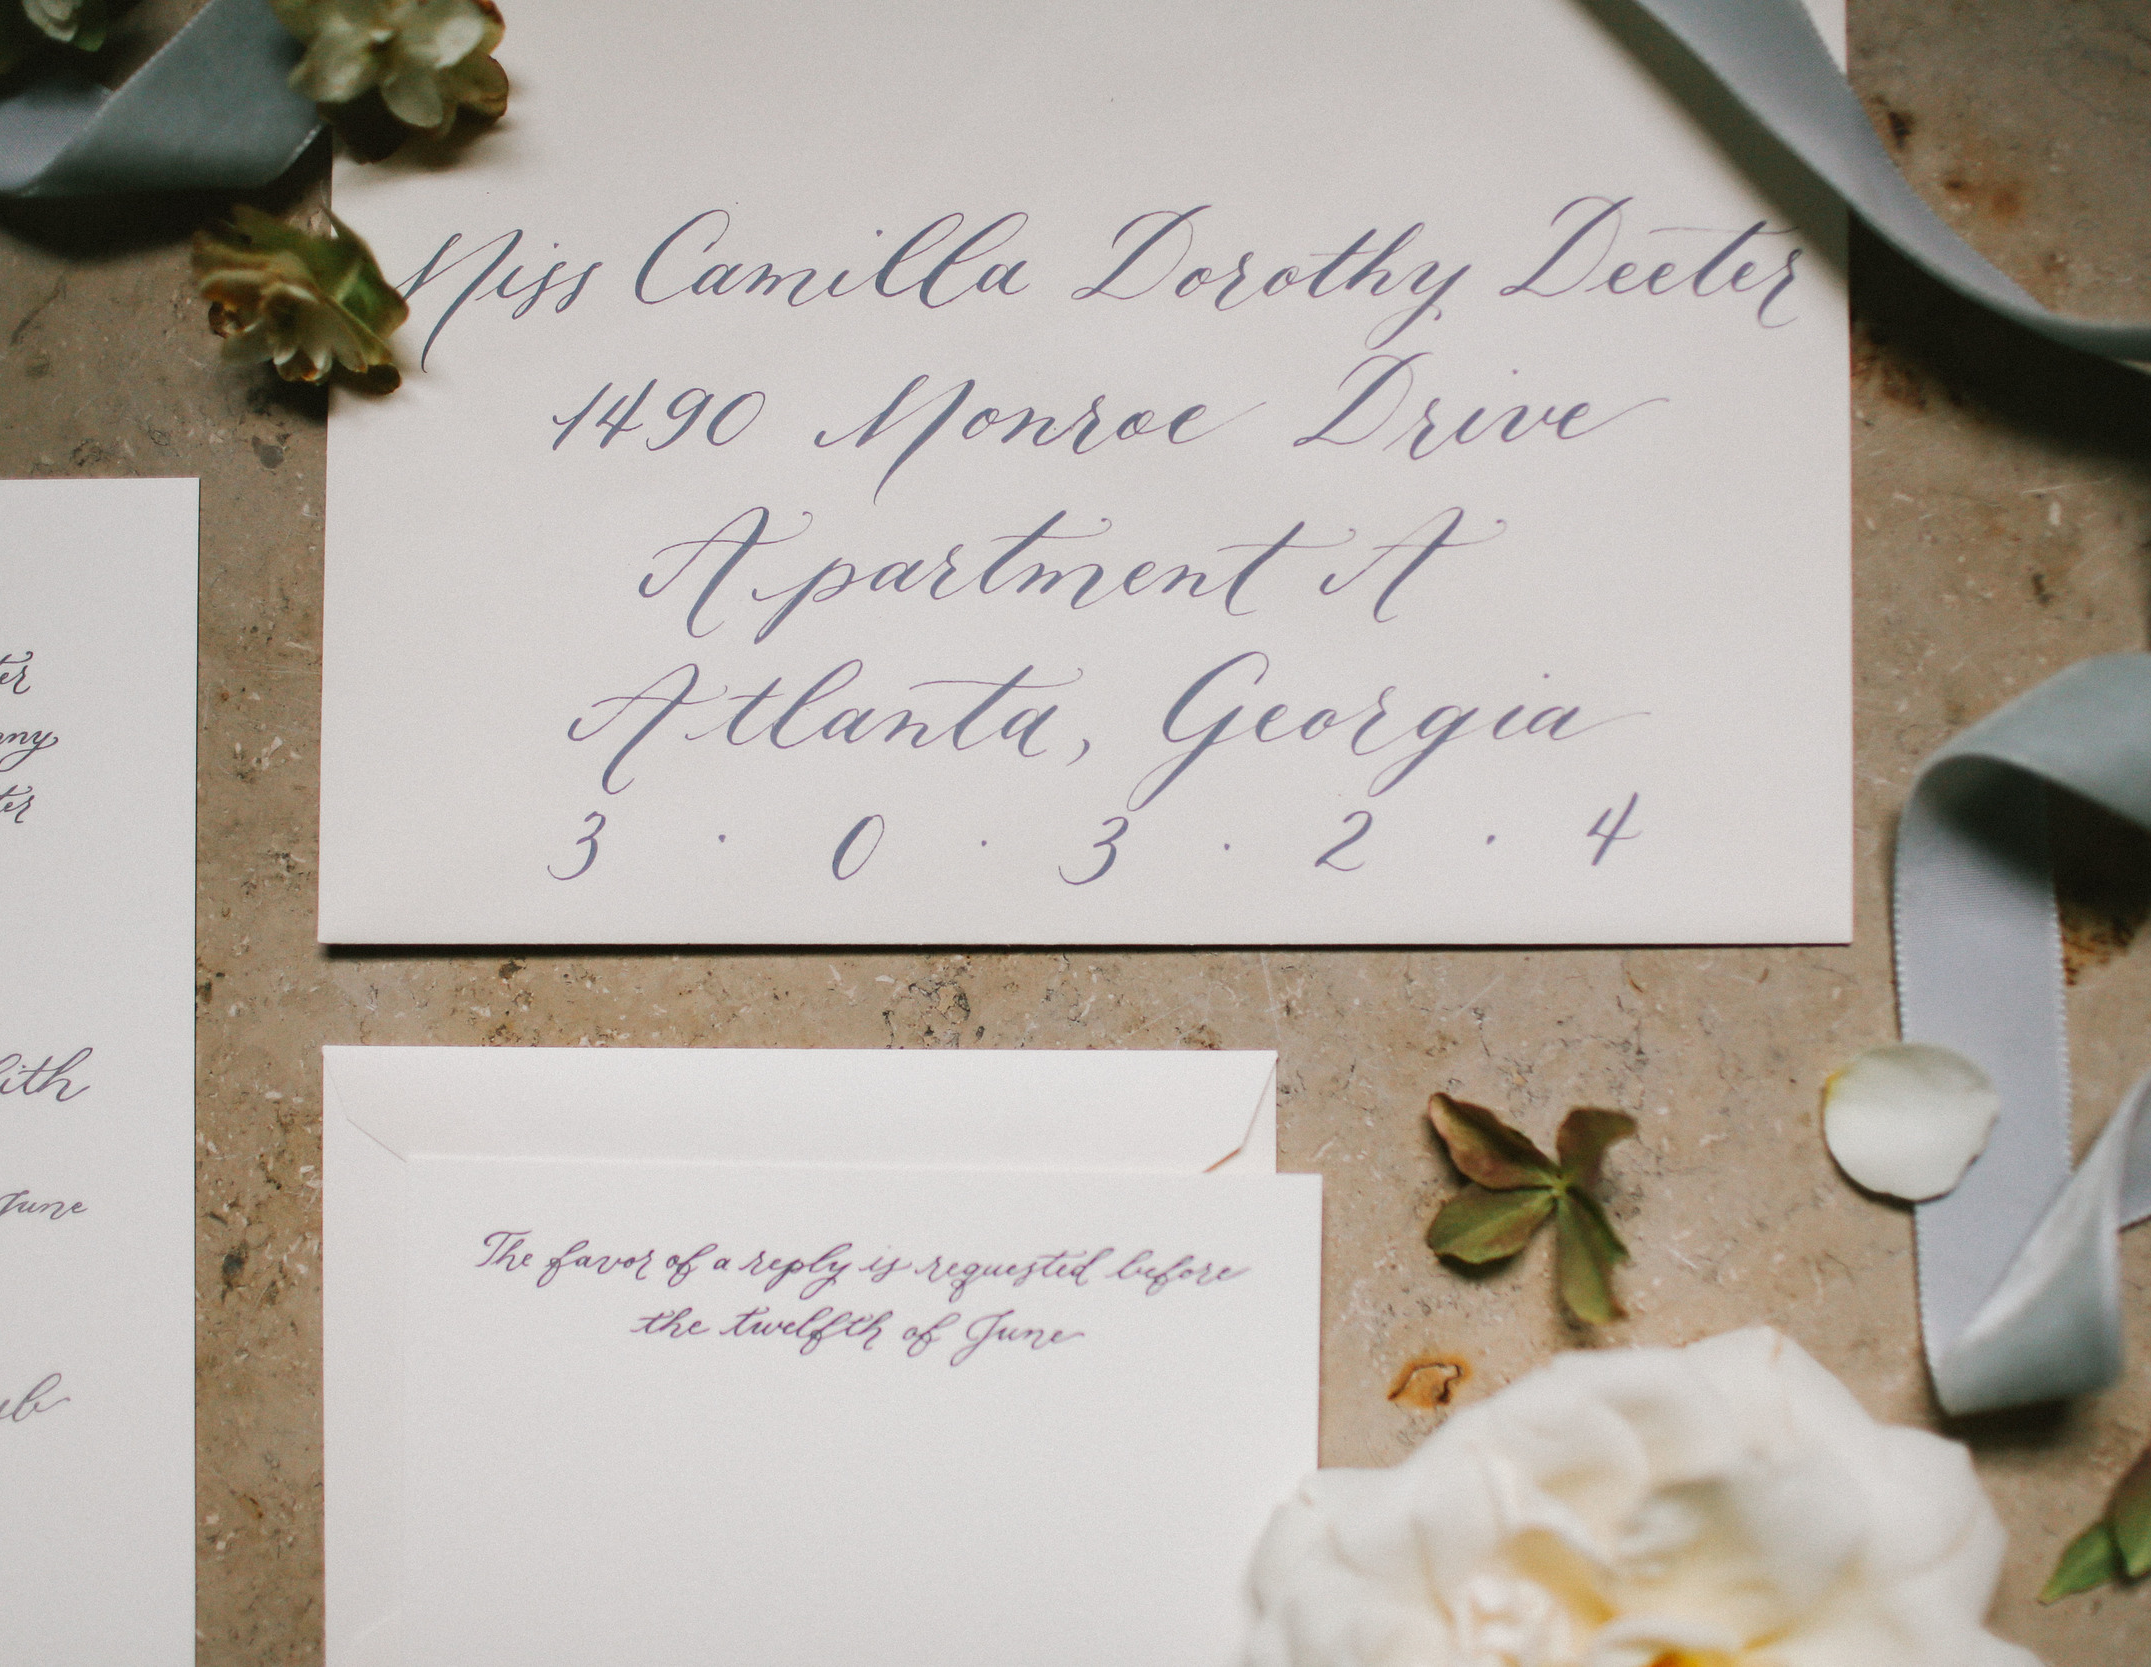 Miss Camilla Dorothy Deeter
1490 Monroe Drive
Apartment A
Atlanta, Georgia
3 · 0 · 3 · 2 · 4
The favor of a reply is requested before
the twelfth of June
June